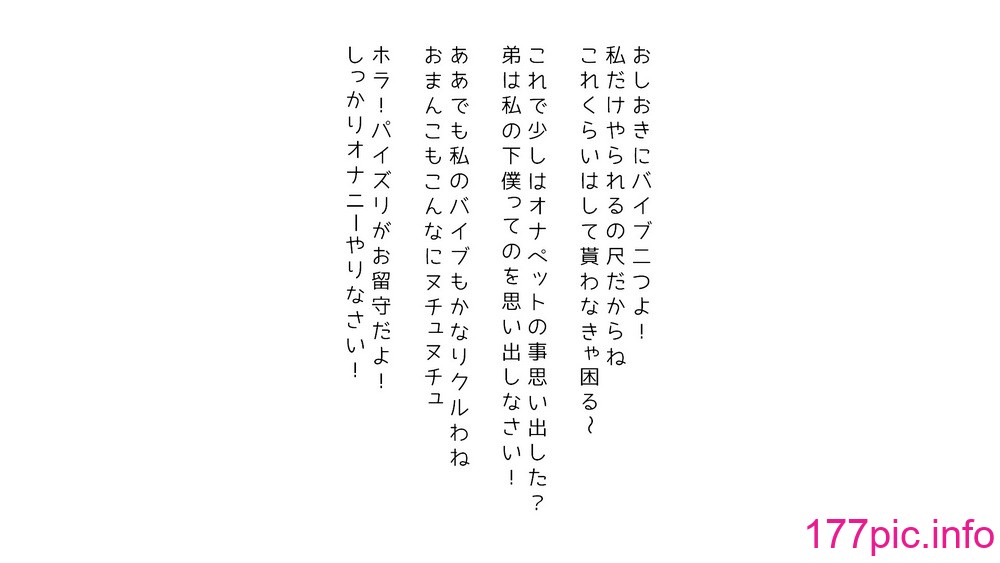 おしおきにバイブ二つよ！
私だけやられるの尺だからね
これくらいはして貰わなきゃ困る～
これで少しはオナペットの事思い出した？
弟は私の下僕ってのを思い出しなさい！
ああでも私のバイブもかなりクルわね
おまんこもこんなにヌチュヌチュ
ホラ！パイズリがお留守だよ！
しっかりオナニーやりなさい！
177pic.info